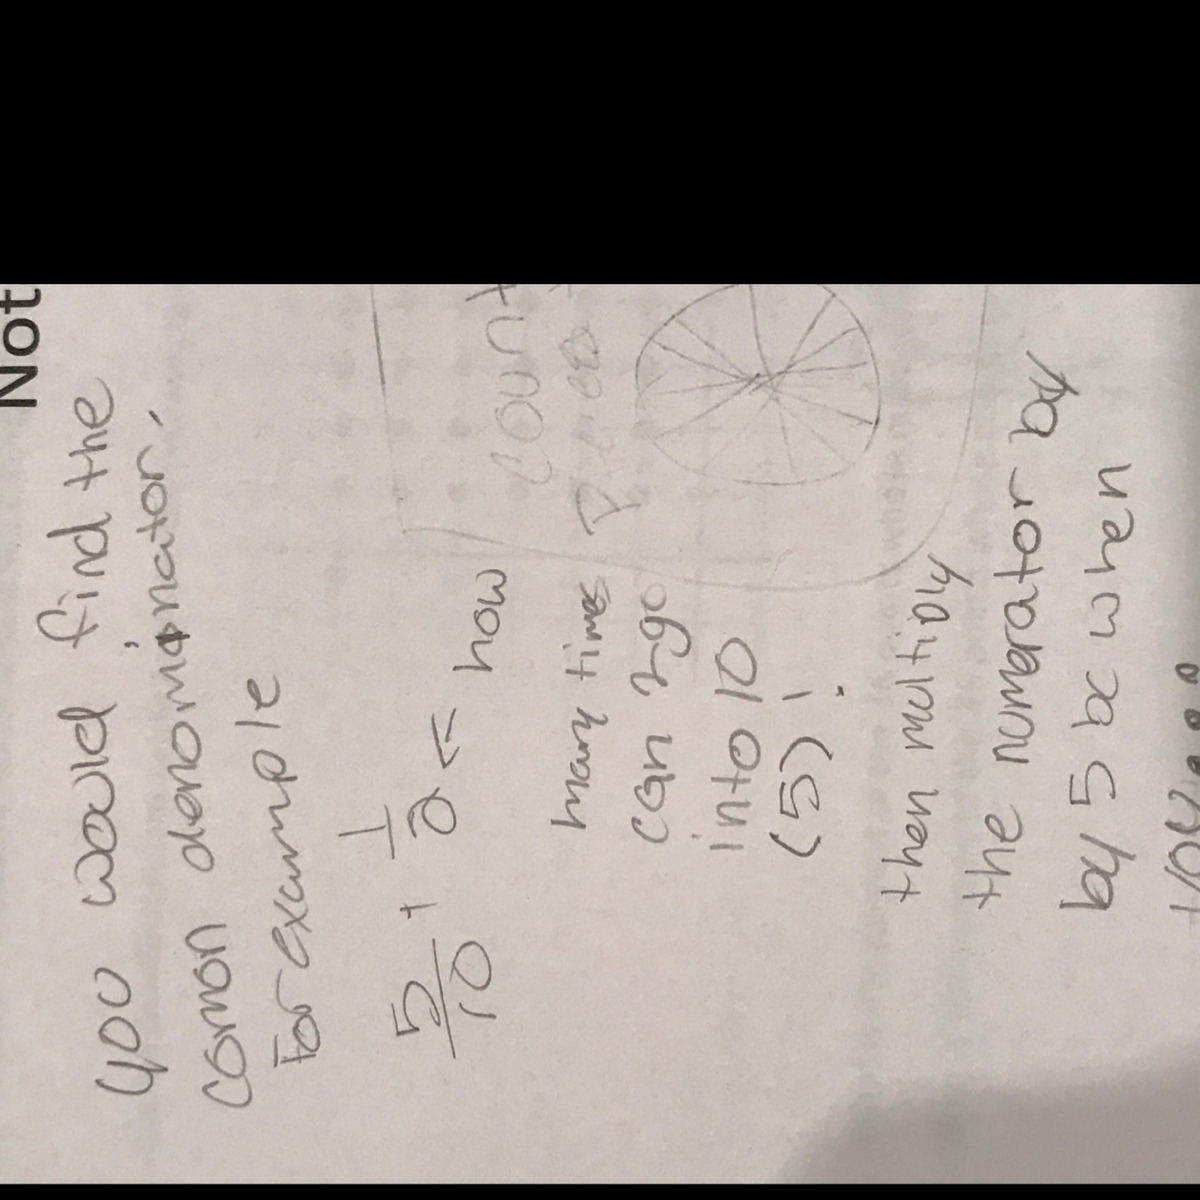 Not
you would find the
comon denominator.
for example
5/10 + 1/2 < how
many times
can 2 go
into 10
(5)!
then multiply
the numerator by
by 5 bc when
count